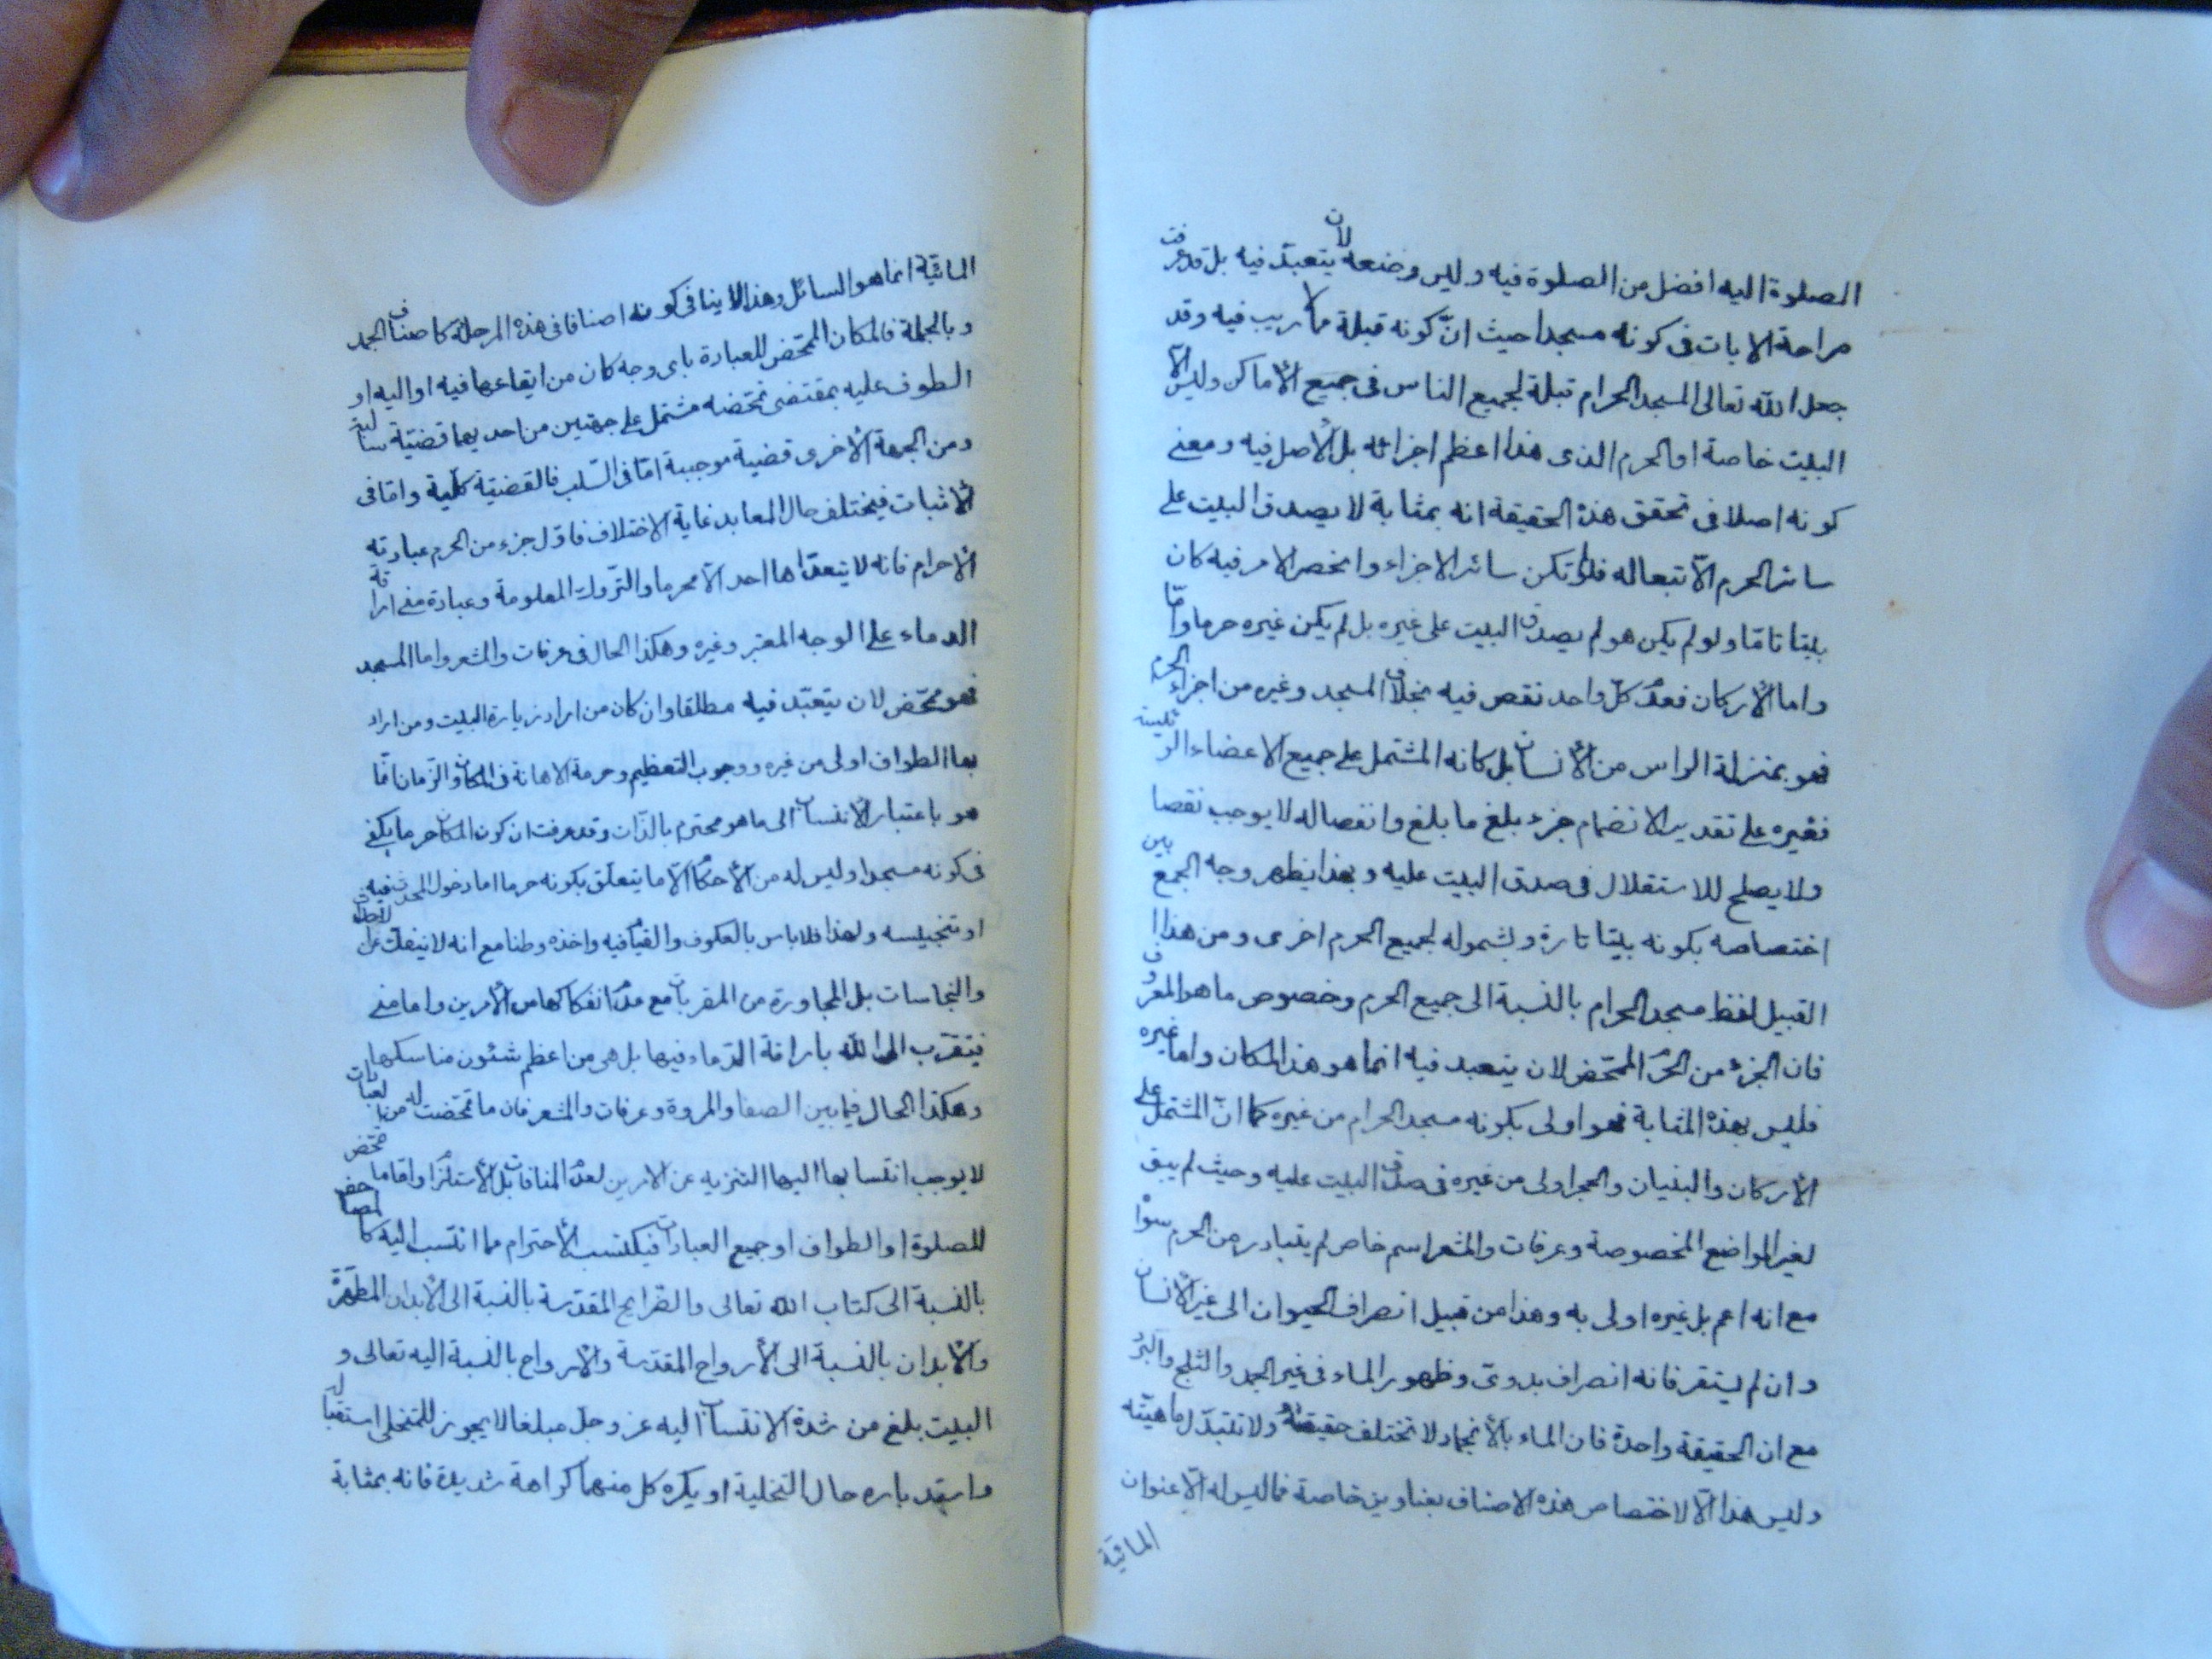 الصلوة اليه افضل من الصلوة فيه وليس وضعه لان يتعبد فيه بل قد عرفت
صراحة الايات فى كونه مسجدا حيث انّ كونه قبلة مما لا ريب فيه وقد
جعل الله تعالى المسجد الحرام قبلة لجميع الناس فى جميع الأماكن وليس الّا
البيت خاصة او الحرم الذى هذا اعظم اجزائه بل الأصل فيه ومعنى
كونه اصلا فى تحقق هذه الحقيقة انه بمثابة لا يصدق البيت على
سائر الحرم الّا تبعا له فلو لم تكن سائر الاجزاء وانحصر الامر فيه كان
بيتا تامّا ولو لم يكن هو لم يصدق البيت على غيره بل لم يكن غيره حرما وامّا
واما الأركان فعدم كلّ واحد نقص فيه بخلاف المسجد وغيره من اجزاء الحرم
فهو بمنزلة الراس من الأنسان بل كانه المشتمل على جميع الاعضاء الرئيسة
فغيره على تقدير الانضمام جزء بلغ ما بلغ وانفصاله لا يوجب نقصا
ولا يصلح للاستقلال فى صدق البيت عليه وبهذا يظهر وجه الجمع بين
اختصاصه بكونه بيتا تارة وبشموله لجميع الحرم اخرى ومن هذا
القبيل لفظ مسجد الحرام بالنسبة الى جميع الحرم وخصوص ما هو المعروف
فان الجزء من الحرم المتمحض لان يتعبد فيه انما هو هذا المكان واما غيره
فليس بهذه المثابة فهو اولى بكونه مسجد الحرام من غيره كما انّ المشتمل على
الأركان والبنيان والحجر اولى من غيره فى صدق البيت عليه وحيث لم يبق
لغير المواضع المخصوصة وعرفات والمشعر اسم خاص لم يتبادر من الحرم سوا
مع انه اعم بل غيره اولى به وهذا من قبيل انصراف الحيوان الى غير الأنسان
وان لم يستقر فانه انصراف بدوىّ وظهور الماء فى غير الجمد والثلج والبرد
مع ان الحقيقة واحدة فان الماء بالأنجماد لا تختلف حقيقته ولا تتبدّل ماهيته
وليس هذا الّا لاختصاص هذه الاصناف بعناوين خاصة فما ليس له الّا عنوان
المائية
المائية انما هو السائل وهذا لا ينافى كونه اصنافا فى هذه المرحلة كاصناف الجمد
وبالجملة فالمكان المتمحّض للعبادة باى وجه كان من ايقاعها فيه او اليه او
الطوف عليه بمقتضى تمحّضه مشتمل على جهتين من احديهما قضيّة سالبة
ومن الجهة الأخرى قضية موجبة امّا فى السّلب فالقضيّة كلّية وامّا فى
الأثبات فيختلف حال المعابد غاية الاختلاف فاوّل جزء من الحرم عبادته
الأحرام فانه لا يتعدّاها احد الّا محرما والتّروك المعلومة وعبادة منى اراقة
الدماء على الوجه المعتبر وغيره وهكذا الحال فى عرفات والمشعر واما المسجد
فهو متمحّض لان يتعبّد فيه مطلقا وان كان من اراد زيارة البيت ومن اراد
بها الطواف اولى من غيره ووجوب التعظيم وحرمة الاهانة فى المكان والزّمان انّما
هو باعتبار الأنتساب الى ما هو محترم بالذّات وقد عرفت ان كون المكان حرما يكفى
فى كونه مسجدا وليس له من الأحكام الّا ما يتعلّق بكونه حرما اما دخول المحدث فيه
او تنجيسه ولهذا فلا باس بالعكوف والقيام فيه واخذه وطنا مع انه لا ينفك عن الاحداث
والنجاسات بل المجاورة من المقربات مع عدم انفكاكها من الأمرين واما منى
فيتقرّب الى الله باراقة الدّماء فيها بل هى من اعظم شئون مناسكها
وهكذا الحال فيما بين الصفا والمروة وعرفات والمشعر فان ما تمحّضت له من العبادات
لا يوجب انتسابها اليها التنزيه عن الامرين لعدم المنافات بل الأستلزام وامّا ما تمحّض
للصلوة او الطواف او جميع العبادات فيكتسب الأحترام مما انتسب اليه كالمصاحف
بالنسبة الى كتاب الله تعالى والضّرايح المقدّسة بالنسبة الى الأبدان المطهّرة
والأبدان بالنسبة الى الأرواح المقدّسة والأرواح بالنسبة اليه تعالى و
البيت بلغ من شدة الانتساب اليه عز وجل مبلغا لا يجوز للمتخلى استقباله
واستدباره حال التخلية او يكره كل منهما كراهة شديدة فانه بمثابة